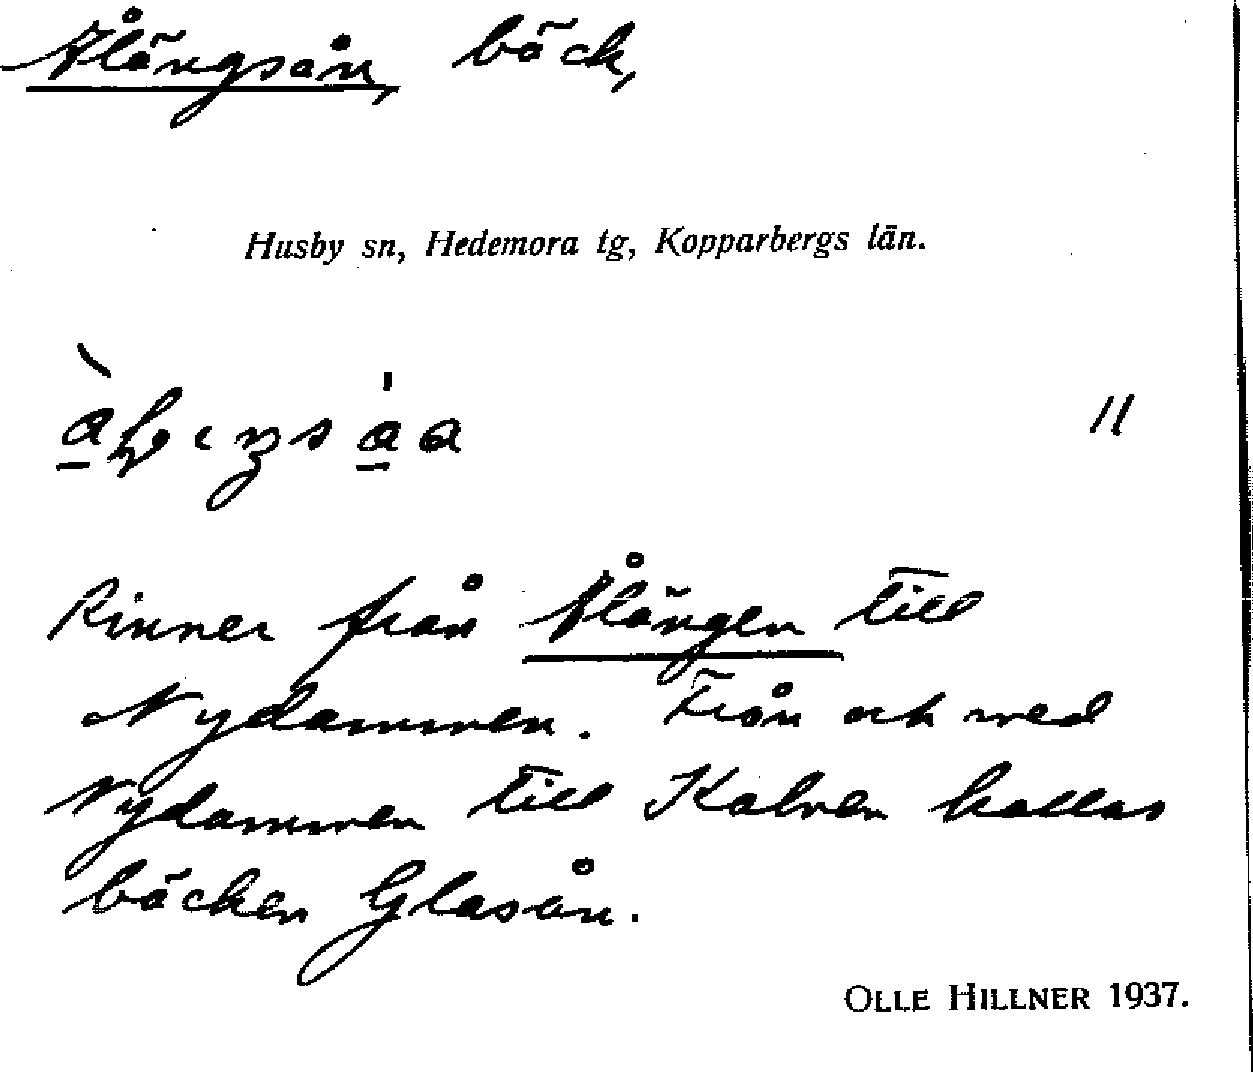 Ålängsån, bäck,
Husby sn, Hedemora tg, Kopparbergs län.
11
Rinner från Ålängen till
Nydammen. Från och med
Nydammen till Kalven kallas
bäcken Glasån.
OLLE HILLNER 1937.